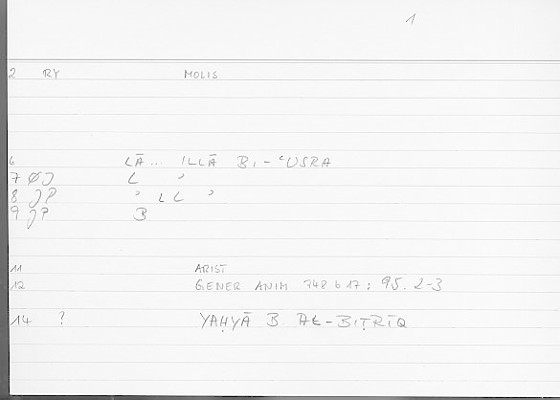 1
2 RY MOLIS
6 LĀ... ILLĀ BI-ʿUSRA
7 ØJ L ʾ
8 JP ʾ LL ʾ
9 JP B
11 ARIST
12 GENER ANIM 748 b 17: 95. 2-3
14 ? YAḤYĀ B AL-BIṬRĪQ